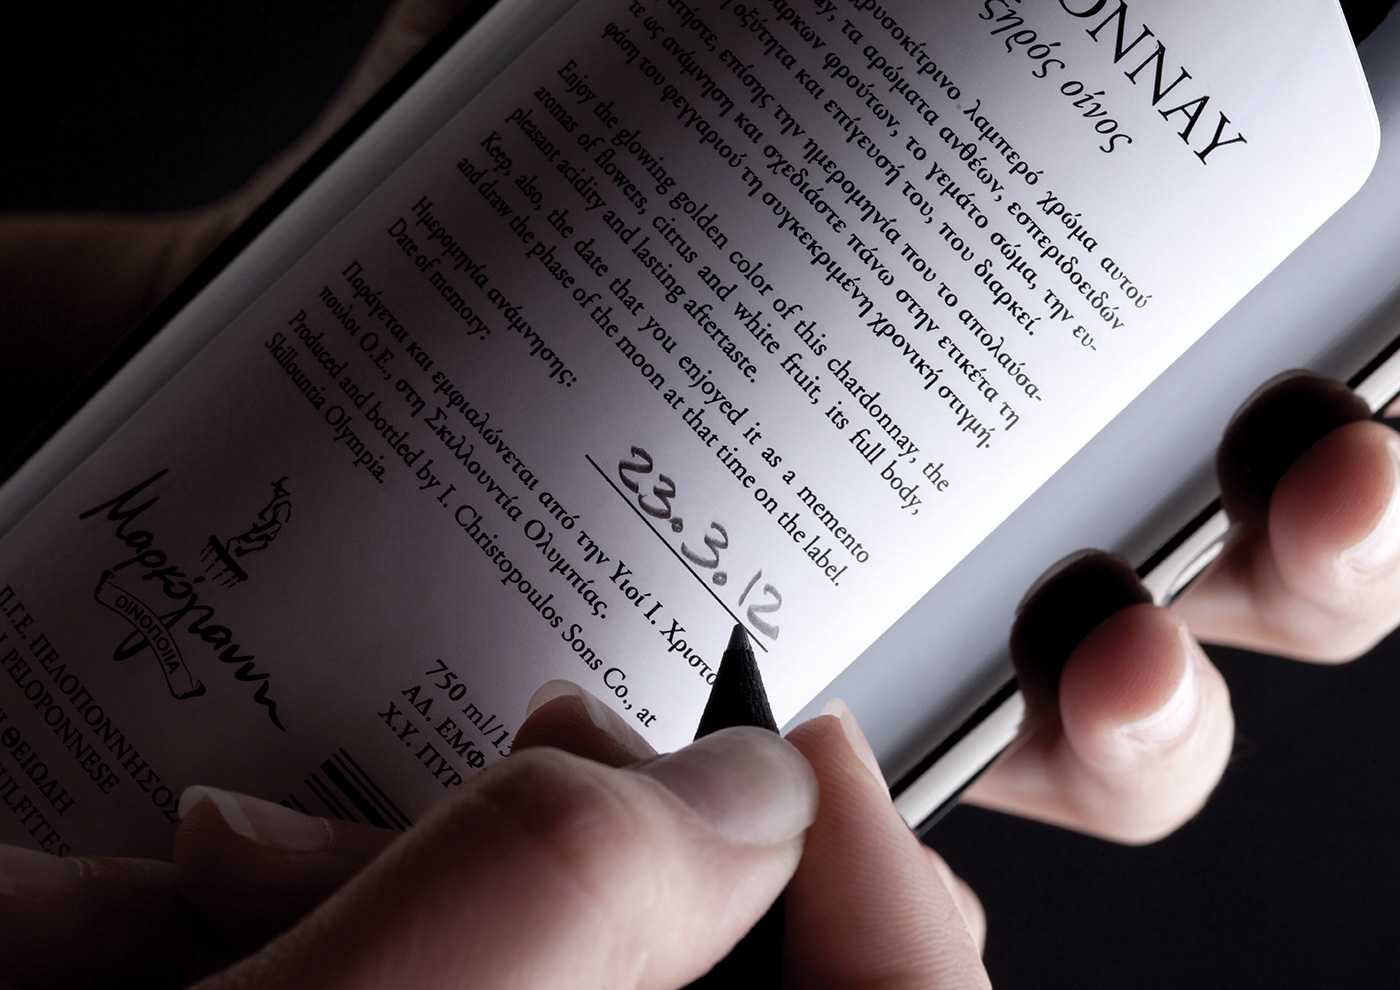 ONNAY
ξηρός οίνος
χρυσοκίτρινο λαμπερό χρώμα αυτού
τα αρώματα ανθέων, εσπεριδοειδών
φρούτων, το γεμάτο σώμα, την ευ-
οξύτητα και επίγευσή του, που διαρκεί.
επίσης την ημερομηνία που το απολαύσα-
τε ως ανάμνηση και σχεδιάστε πάνω στην ετικέτα τη
φάση του φεγγαριού τη συγκεκριμένη χρονική στιγμή.
Enjoy the glowing golden color of this chardonnay, the
aromas of flowers, citrus and white fruit, its full body,
pleasant acidity and lasting aftertaste.
Keep, also, the date that you enjoyed it as a memento
and draw the phase of the moon at that time on the label.
Ημερομηνία ανάμνησης:
Date of memory:
23.3.12
Παράγεται και εμφιαλώνεται από την Υιοί Ι. Χριστο
πουλοι Ο.Ε., στη Σκιλλουντία Ολυμπίας.
Produced and bottled by I. Christopoulos Sons Co., at
Skillountia Olympia.
Μαρκόγιαννη
ΟΙΝΟΠΟΙΙΑ
750 ml/13
ΑΔ. ΕΜΦ
Χ.Υ. ΠΥΡ
Π.Γ.Ε. ΠΕΛΟΠΟΝΝΗΣΟΣ
PELOPONNESE
ΘΕΙΩΔΗ
SULFITES